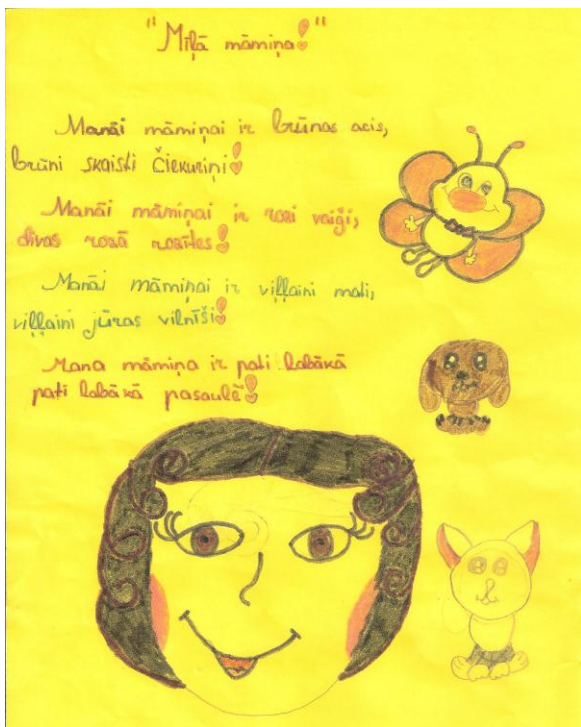 "Mīļā māmiņa!"
Manāi māmiņai ir brūnas acis,
brūni skaisti čiekuriņi!
Manāi māmiņai ir rozi vaigi,
divas rozā rozītes!
Manāi māmiņai ir viļļaini mati,
viļļaini jūras vilnīši!
Mana māmiņa ir pati labākā
pati labākā pasaulē!